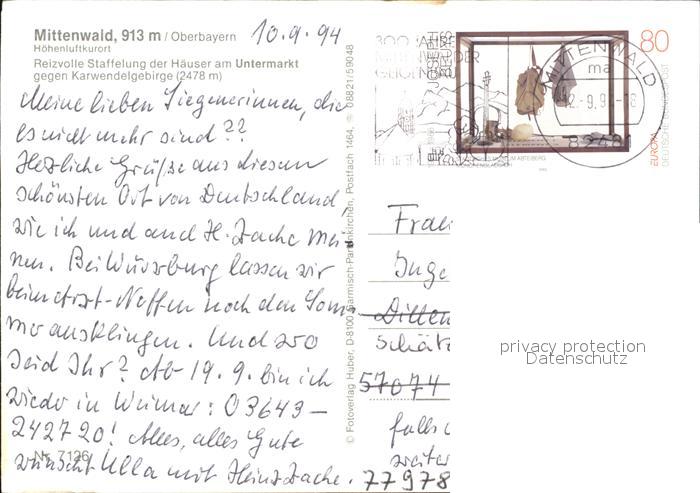 Mittenwald, 913 m / Oberbayern
Höhenluftkurort
Reizvolle Staffelung der Häuser am Untermarkt
gegen Karwendelgebirge (2478 m)
10.9.94
Meine lieben Siegenerinnen, die
es nicht mehr sind??
Herzliche Grüße aus diesem
schönsten Ort von Deutschland,
wie ich und auch H. Zache mei-
nen. Bei Würzburg lassen wir
beim Arzt-Neffen noch den Som-
mer ausklingen. Und wo
seid Ihr? Ab 19.9. bin ich
wieder in Weimar: 03643-
242720! Alles, alles Gute
wünscht Ulla mit Heinz Zache.
Nr. 7126
© Fotoverlag Huber, D-8100 Garmisch-Partenkirchen, Postfach 1464, 08821/59048
MITTENWALD
ma
80
EUROPA
DEUTSCHE BUNDESPOST
Frau
Inge
Ditten
Schätz
57074
falls
weiter
77978
privacy protection
Datenschutz